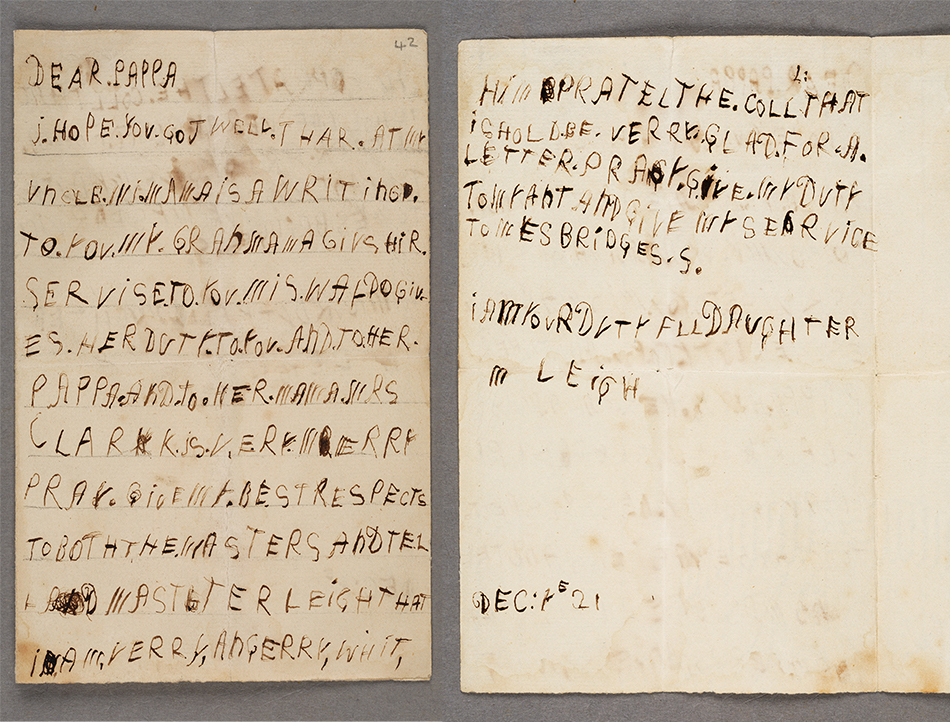 42
DEAR.PAPPA
i.HOPE.YOV.GOT WELL.THAR.AT MY
VNCLE.MI.MAMA iS A WRITiNG.
TO.YOV.MY.GRANMAMA GIVS HiR.
SERViSE.TO.YOV.MIS.WALDO GIV-
ES.HER DVTY.TO.YOV.AND.TO.HER.
PAPPA.AND.to.HER.MAMA.MRS
CLARK.iS.VERY.MERRY
PRAY.GiVE MY.BEST RESPECTS
TO BOTH THE.MASTERS AND TEL
MASTER LEIGH THAT
i AM,VERRY,ANGERRY,WHIT,
HiM PRA TEL THE.COLL THAT
iSHOLD.BE.VERRY.GLAD.FOR.A.
LETTER.PRAY.GIVE.MY DUTY
TO MY ANT AND GIVE MY SERVICE
TO MES BRiDGES.S.
i AM YOVR DVTY FLL DAUGHTER
M LEiGH
DEC:Yᴱ 21